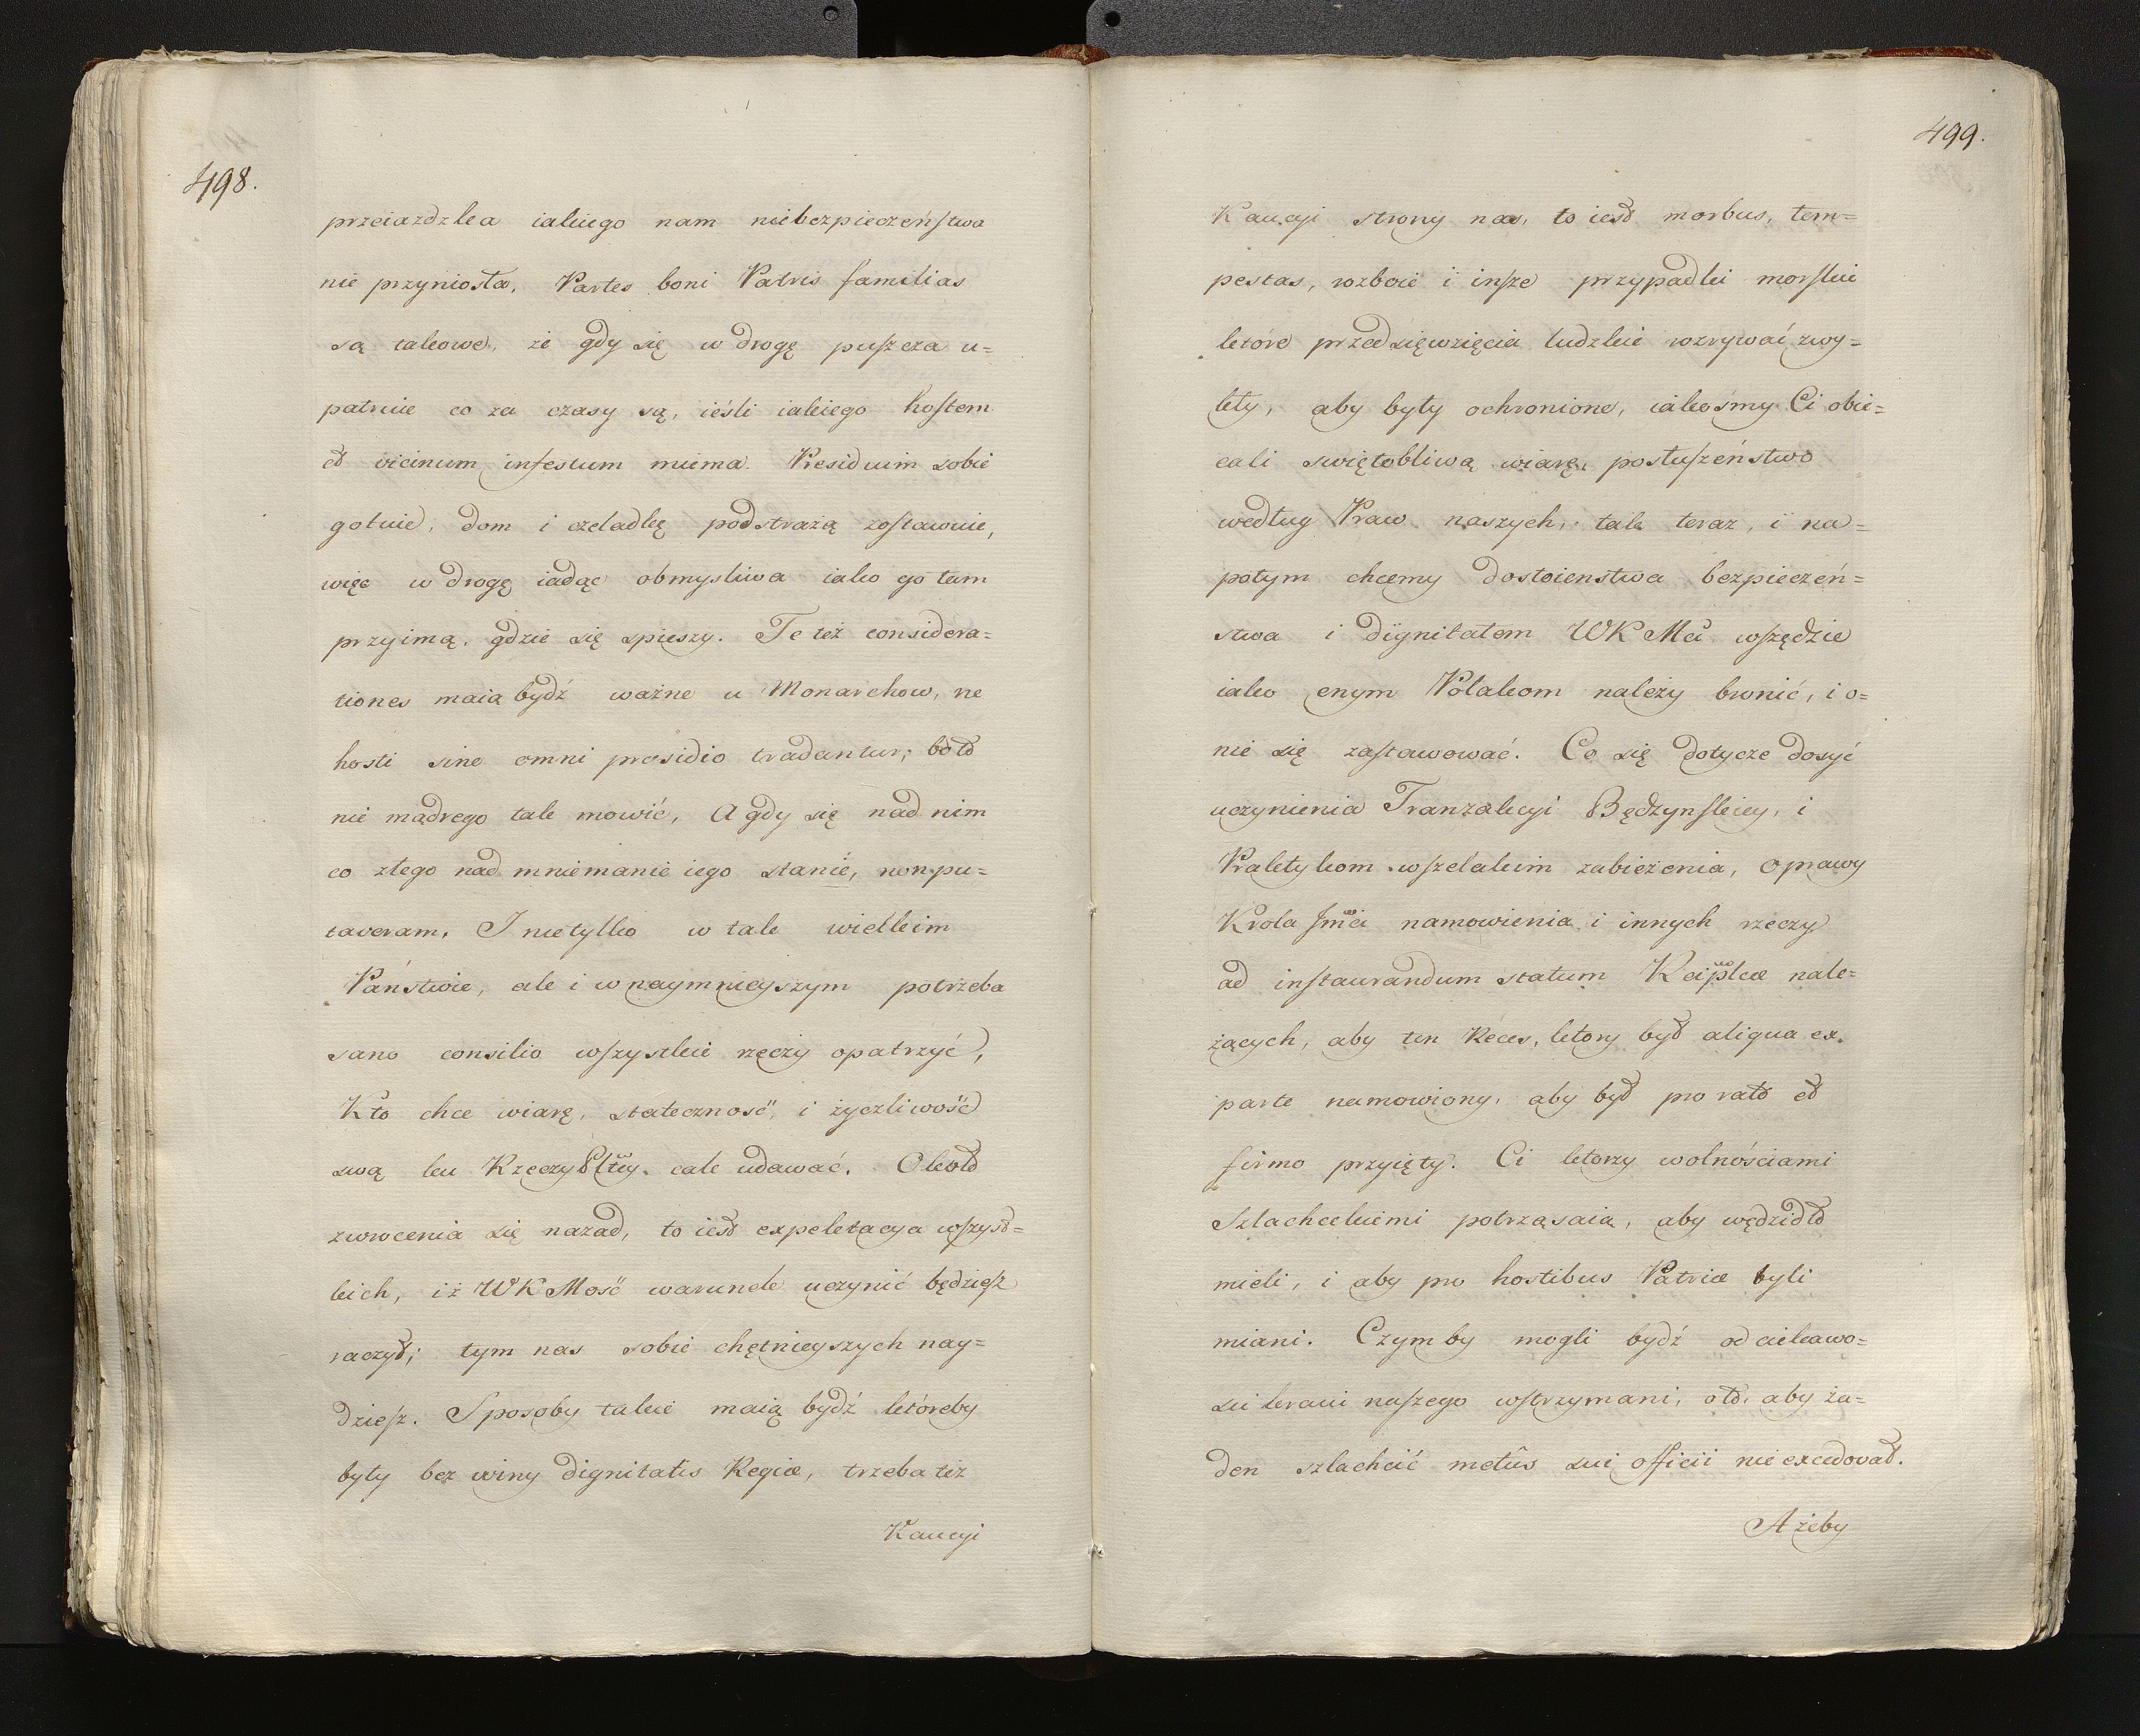 498.
przeiazdzka iakiego nam niebezpieczeństwa
nie przyniosła. Partes boni Patris familias
są takowe, że gdy się w drogę puszcza u=
patruie co za czasy są, ieśli iakiego hostem
et vicinum infestum niema. Presidium sobie
gotuie, dom i czeladkę pod strażą zostawuie,
więc w drogę iadąc obmysliwa iako go tam
przyimą, gdzie się spieszy. Te też considera=
tiones maią bydź ważne u Monarchow, ne
hosti sine omni presidio tradantur; bo to
nie mądrego tak mowić, A gdy się nad nim
co złego nad mniemanie iego stanie, non pu=
taveram. I nie tylko w tak wielkim
Państwie, ale i w naymnieyszym potrzeba
sano consilio wszystkie rzeczy opatrzyć,
Kto chce wiarę, stateczność, i życzliwość
swą ku Rzeczyplttey cale udawać. Około
zwrocenia się nazad, to iest expektacya wszyst=
kich, iż WKMość warunek uczynić będziesz
raczył; tym nas sobie chętnieyszych nay=
dziesz. Sposoby takie maią bydź któreby
były bez winy dignitatis Regiæ, trzeba też
Kaucyi
499.
Kaucyi strony nas, to iest morbus, tem=
pestas, rozboie i insze przypadki morskie
które przedsięwzięcia ludzkie rozrywać zwy=
kły, aby były ochronione, iakośmy Ci obie=
cali swiętobliwą wiarę, posłuszeństwo
według Praw naszych, tak teraz, i na=
potym chcemy dostoienstwa bezpieczeń=
stwa i dignitatem WKMci wszędzie
iako cnym Polakom należy bronić, i o=
nie się zastawować. Co się dotycze dosyć
uczynienia Tranzakcyi Będzynskiey, i
Praktykom wszelakim zabieżenia, oprawy
Krola Jmci namowienia i innych rzeczy
ad instaurandum statum Reipcæ nale=
żących, aby ten Reces, ktory był aliqua ex
parte namowiony, aby był pro rato et
firmo przyięty. Ci ktorzy wolnościami
Szlacheckiemi potrząsaią, aby wędzidło
mieli, i aby pro hostibus Patriæ byli
miani. Czym by mogli bydź od ciekawo=
ści kraiu naszego wstrzymani, oto, aby ża=
den szlachcić metûs sui officii nie excedował.
Ażeby